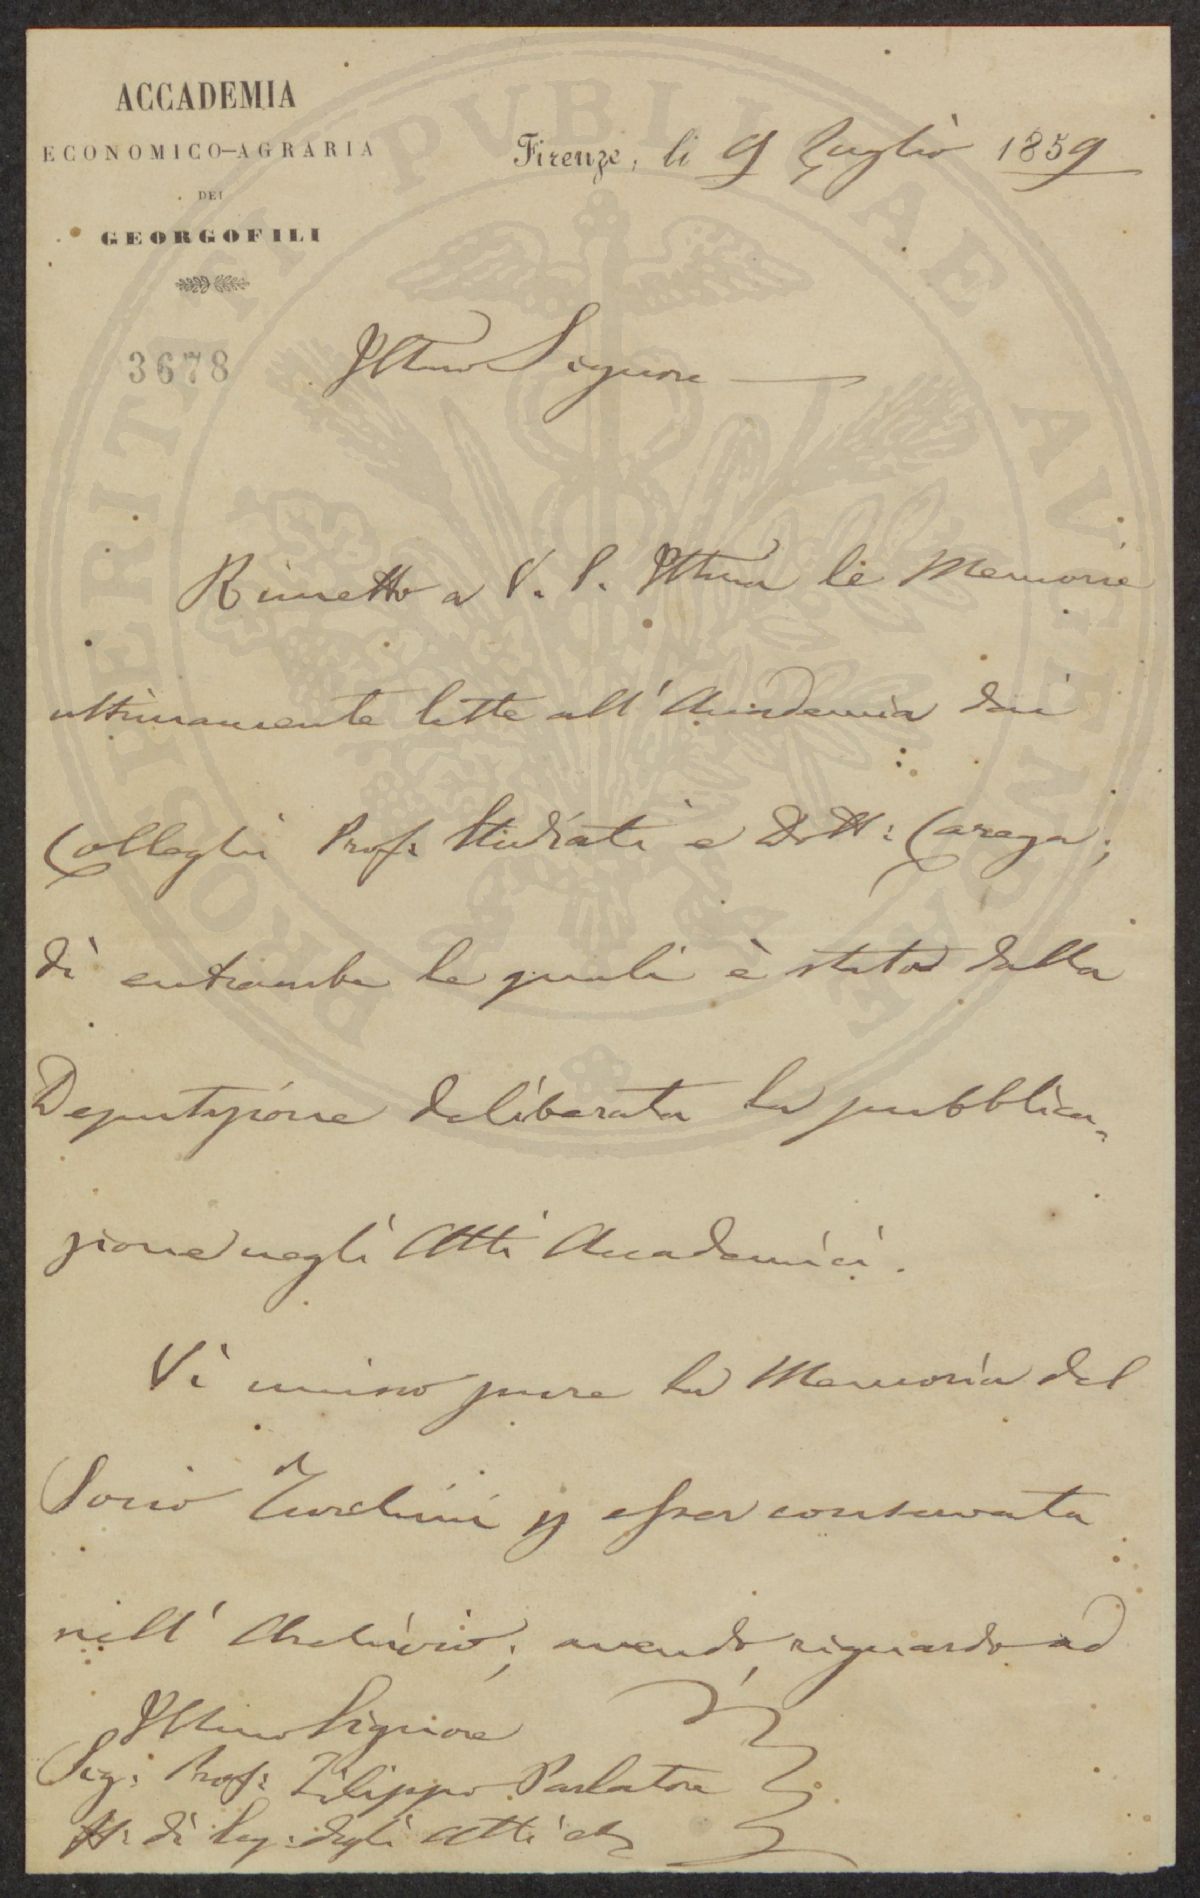 ACCADEMIA
ECONOMICO-AGRARIA
DEI
GEORGOFILI
Firenze, li 9 Luglio 1859
3678
Illmo Signore
Rimetto a V. S. Illma le Memorie
ultimamente lette all' Accademia dai
Colleghi Prof: Studiati e Dott: Carega;
di entrambe le quali è stata dalla
Deputazione deliberata la pubblica-
zione negli Atti Accademici.
Vi unisco pure la Memoria del
Socio Turchini p esser conservata
nell' Archivio; avendo riguardo ad
Illmo Signore
Sig: Prof: Filippo Parlatore
ff: di Seg: degli Atti &c
PROSPERITATI PVBLICAE AVGENDAE